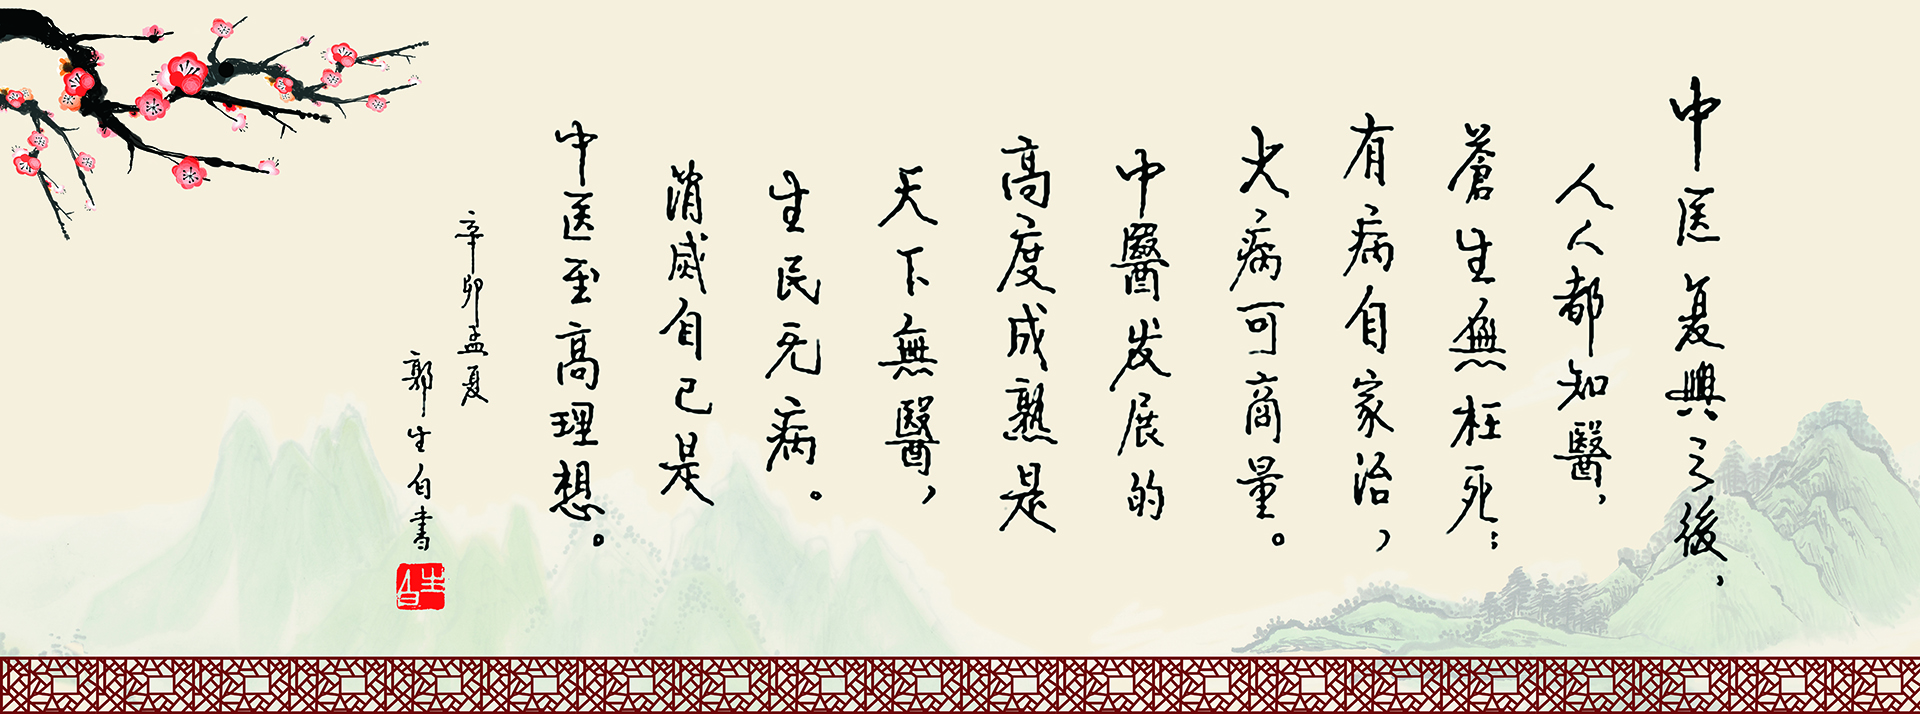 中医复興之後，
人人都知醫，
蒼生無枉死；
有病自家治，
大病可商量。
中醫发展的
高度成熟是
天下無醫，
生民无病。
消滅自己是
中医至高理想。
辛卯孟夏
郭生白書
生白